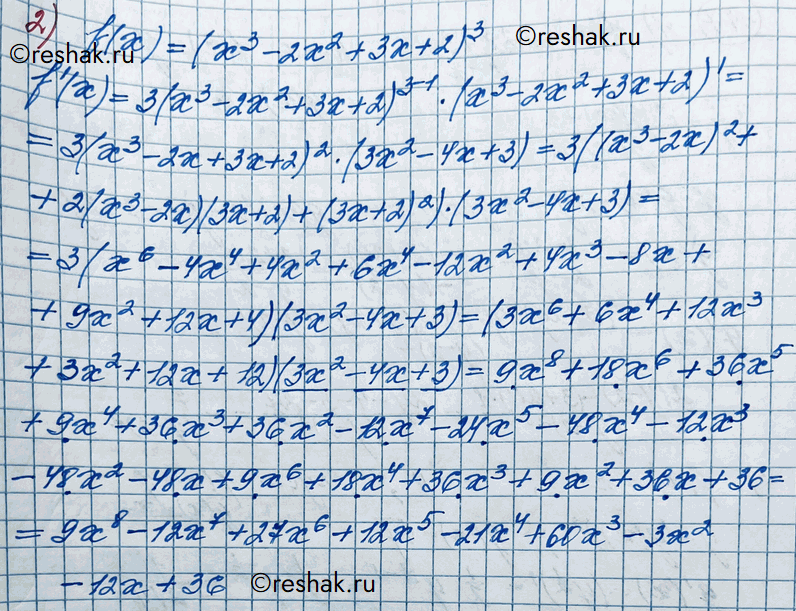 2) f(x) = (x³ - 2x² + 3x + 2)³
©reshak.ru ©reshak.ru
f'(x) = 3(x³ - 2x² + 3x + 2)³⁻¹ · (x³ - 2x² + 3x + 2)' =
= 3(x³ - 2x + 3x + 2)² · (3x² - 4x + 3) = 3((x³ - 2x)² +
+ 2(x³ - 2x)(3x + 2) + (3x + 2)²) · (3x² - 4x + 3) =
= 3(x⁶ - 4x⁴ + 4x² + 6x⁴ - 12x² + 4x³ - 8x +
+ 9x² + 12x + 4)(3x² - 4x + 3) = (3x⁶ + 6x⁴ + 12x³
+ 3x² + 12x + 12)(3x² - 4x + 3) = 9x⁸ + 18x⁶ + 36x⁵
+ 9x⁴ + 36x³ + 36x² - 12x⁷ - 24x⁵ - 48x⁴ - 12x³
- 48x² - 48x + 9x⁶ + 18x⁴ + 36x³ + 9x² + 36x + 36 =
= 9x⁸ - 12x⁷ + 27x⁶ + 12x⁵ - 21x⁴ + 60x³ - 3x²
- 12x + 36 ©reshak.ru